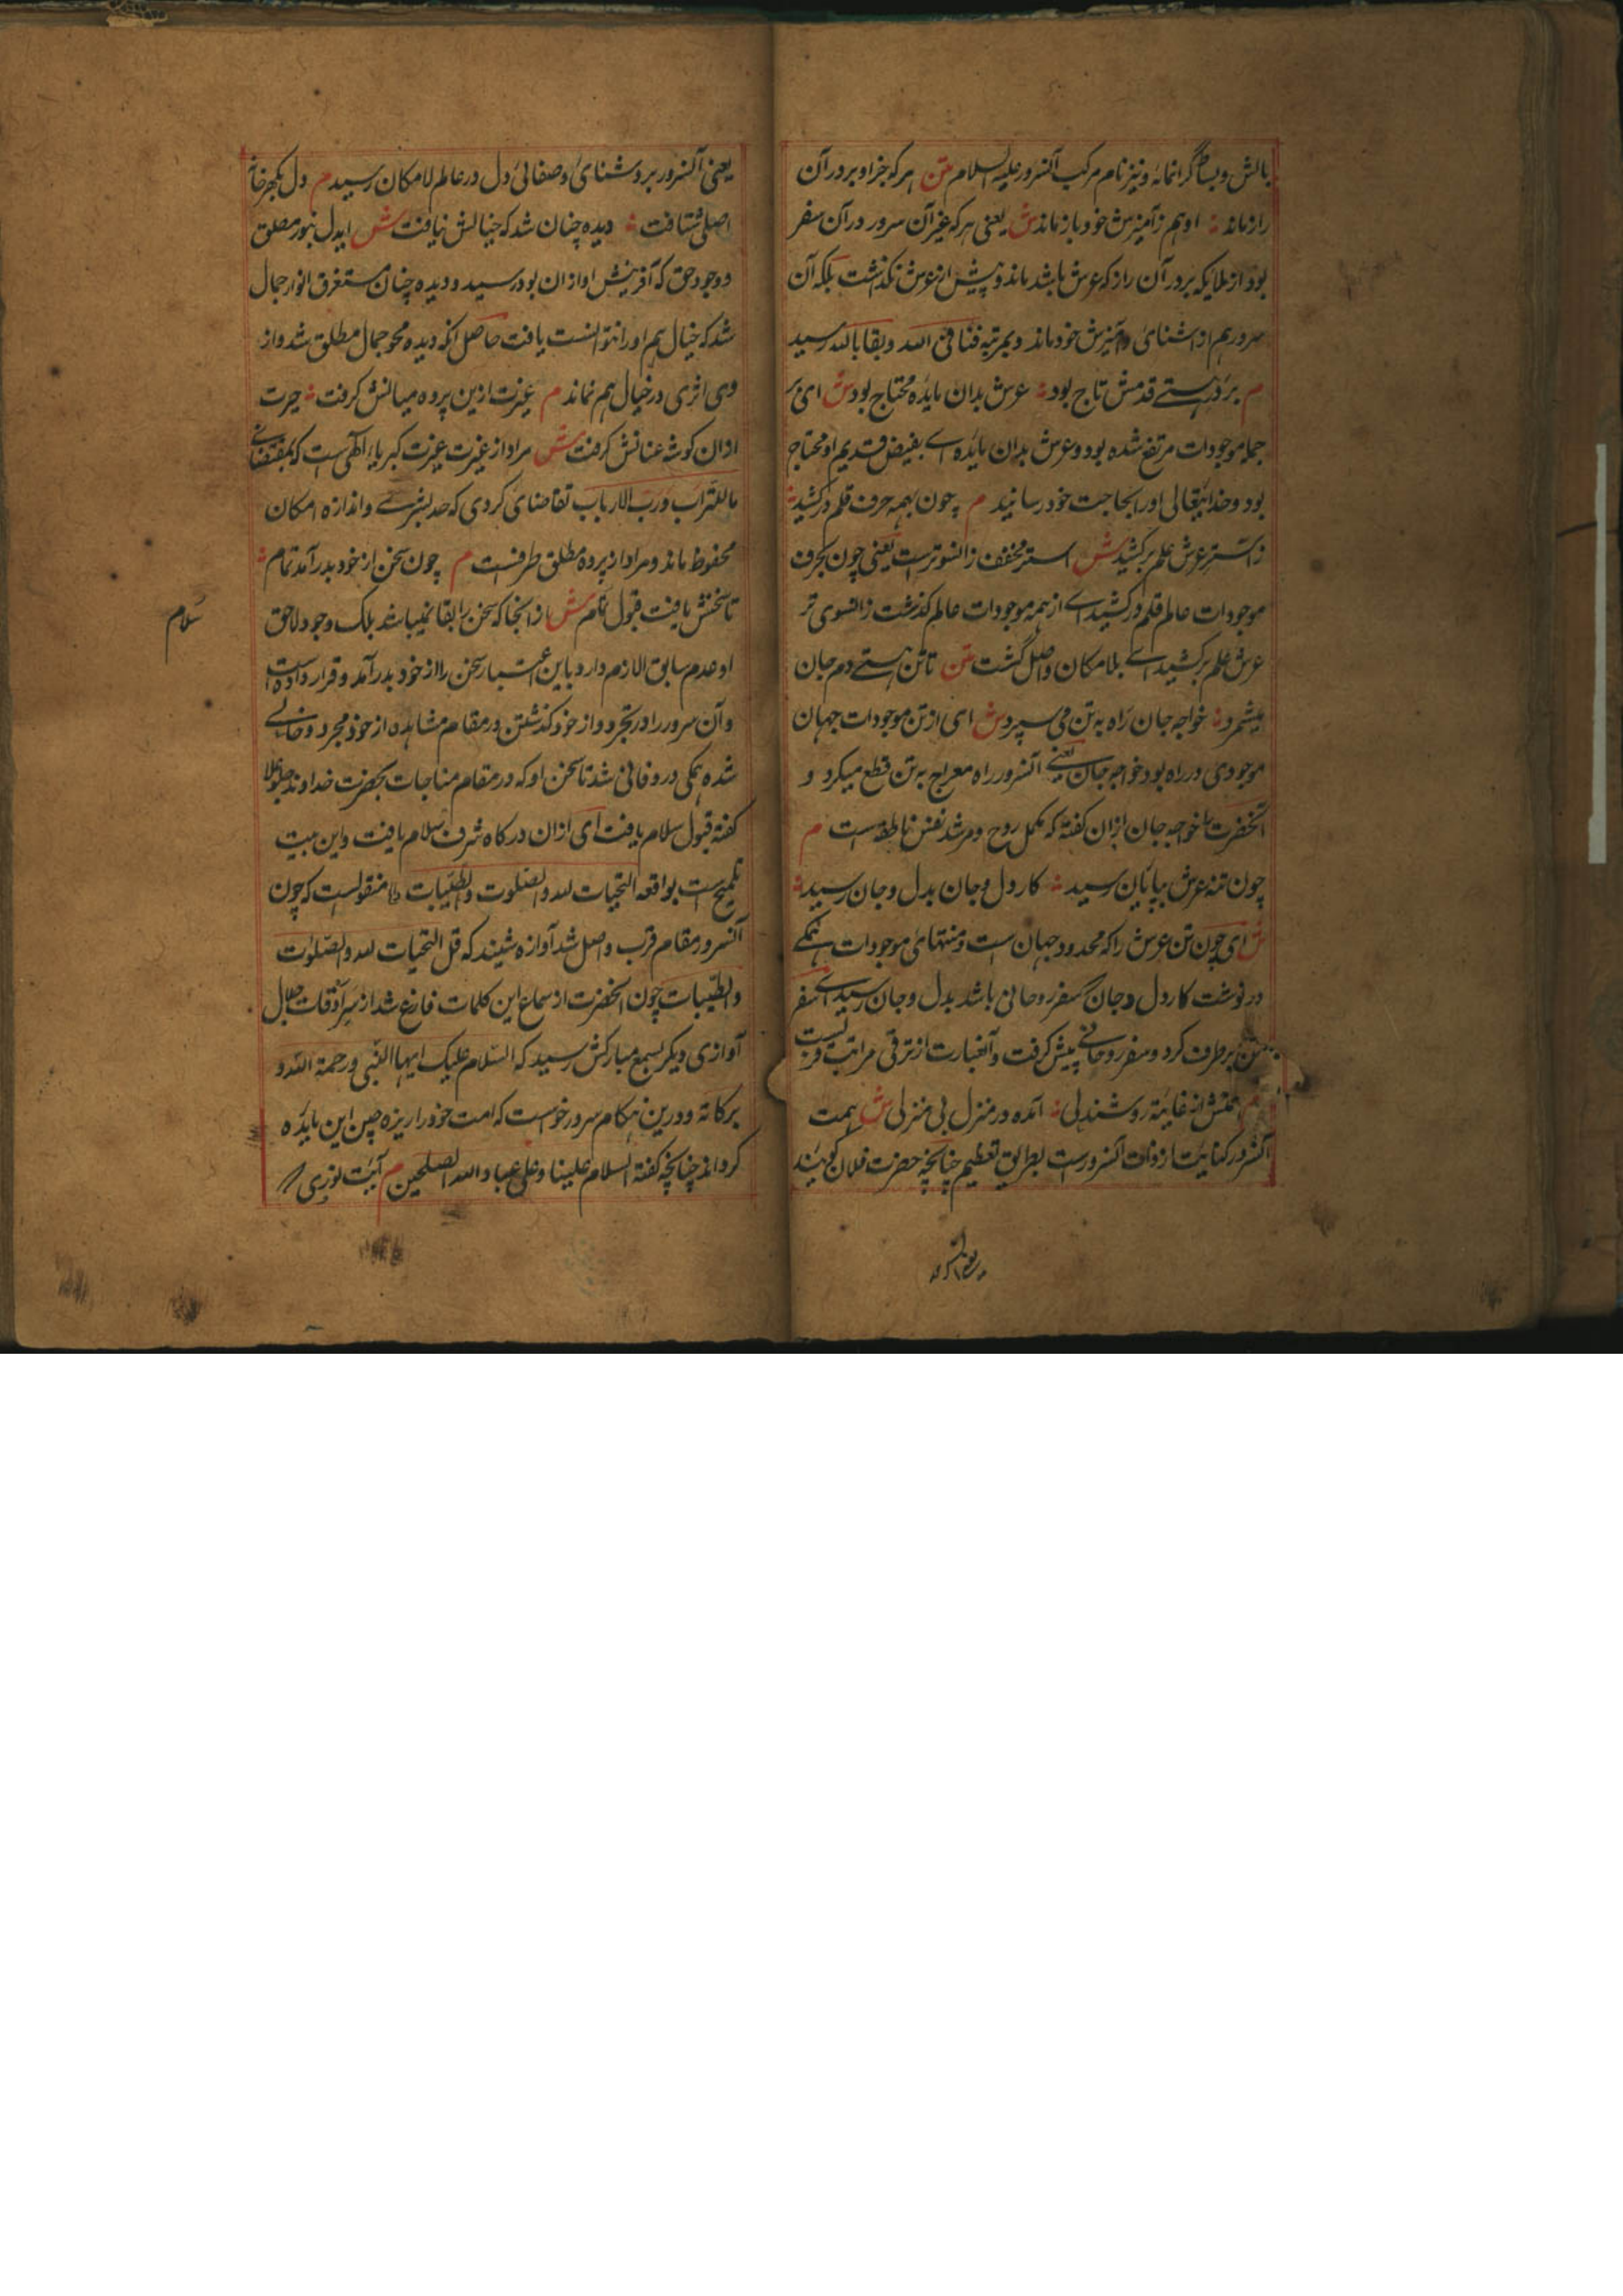 بالش و بساط گرانمایه و نیز نام مرکب آنسرور علیه السلام متن هر که جز او بر در آن
راز ماند ؞ او هم ز آمیزش خود باز ماند ش یعنی هر که غیر آن سرور در آن سفر
بود از ملایکه بر در آن راز که عرش باشد ماند و پیش از عرش نگذشت بلکه آن
سرور هم از آشنای و آمیزش خود ماند و بمرتبه فنا فی الله و بقا بالله رسید
م بر در هستی قدمش تاج بود ؞ عرش بدان مایده محتاج بود ش ای بر
جمله موجودات مرتفع شده بود و عرش بدان مایده اے بفیض قدیم او محتاج
بود و خدایتعالی او را بحاجت خود رسانید م چون بهمه حرف قلم در کشید ؞
ز استر عرش علم بر کشید ش استر مخفف زانسوترست یعنی چون بحرف
موجودات عالم قلم در کشید اے از همه موجودات عالم گذشت زانسوی تر
عرش علم بر کشید اے بلامکان واصل گشت متن تا تن هستے دم جان
میشمرد ؞ خواجه جان راه به تن می سپرد ش ای از تن موجودات جهان
موجودی در راه بود خواجه جان یعنے آنسرور راه معراج به تن قطع میکرد و
آنحضرت را خواجه جان ازان گفته که مکمل روح و مرشد نفس ناطقه است م
چون تنه عرش بپایان رسید ؞ کار دل و جان بدل و جان رسید ؞
ش ای چون تن عرش را که محدود جهان ست و منتهای موجودات همگے
در نوشت کار دل و جان که سفر روحانی باشد بدل و جان رسید اے سفر
تن بر طرف کرد و سفر روحانے پیش گرفت و آنعبارت از ترقی مراتب قربیست
همتش از غایت روشندلی ؞ آمده در منزل بی منزلی ش همت
آنسرور کنایت از ذات آنسرورست بطریق تعظیم چنانچه حضرت فلان گویند
یعنی آنسرور بروشنای و صفائی دل در عالم لامکان رسید م دل بگهر خانه
اصلی شتافت ؞ دیده چنان شد که خیالش نیافت ش ای دل بنور مطلق
و وجود حق که آفرینش او ازان بود رسید و دیده چنان مستغرق انوار جمال
شد که خیال هم او را نتوانست یافت حاصل آنکه دیده محو جمال مطلق شد و از
وی اثری در خیال هم نماند م غیرت ازین پرده میانش گرفت ؞ حیرت
ازان گوشه عنانش گرفت ش مراد از غیرت غیرت کبریای الهی است که بمقتضای
ما للتراب و رب الارباب تقاضای کردی که حد بشرے و اندازه امکان
محفوظ ماند و مراد از پرده مطلق طرفست م چون سخن از خود بدر آمد تمام ؞
تا سخنش یافت قبول تمام ش از انجا که سخن را بقا نمیباشد بلکه وجود لاحق
او عدم سابق لازم دارد باین اعتبار سخن را از خود بدر آمد و قرار داده است
و آن سرور را در تجرد و از خود گذشتن در مقام مشاهده از خود مجرد و خالے
شده همگی درو فانی شد تا سخن او که در مقام مناجات بحضرت خداوند جل و علا
گفته قبول سلام یافت ای ازان درگاه شرف سلام یافت و این بیت
تلمیح ست بواقعه التحیات لله والصلوت والطیبات منقولست که چون
آنسرور مقام قرب واصل شد آوازه شنید که قل التحیات لله والصلوات
والطیبات چون آنحضرت از سماع این کلمات فارغ شد از سرادقات جلال
آوازی دیگر بسمع مبارکش رسید که السلام علیک ایها النبی ورحمة الله و
برکاته و درین هنگام سرور خواست که امت خود را ریزه چین این مایده
گرداند چنانچه گفته السلام علینا وعلی عباد الله الصلحین م آیت نوری
سلام